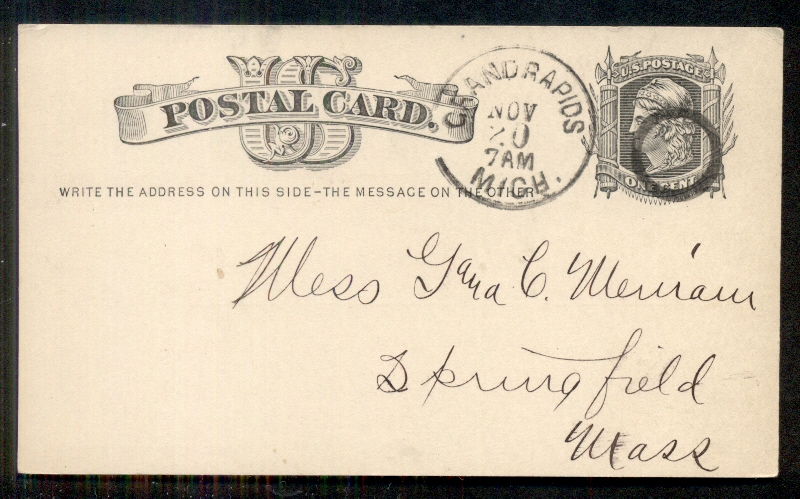 US
POSTAL CARD.
WRITE THE ADDRESS ON THIS SIDE–THE MESSAGE ON THE OTHER
GRAND RAPIDS
NOV
20
7AM
MICH.
U.S. POSTAGE
ONE CENT
Mess C. Merriam
Springfield
Mass